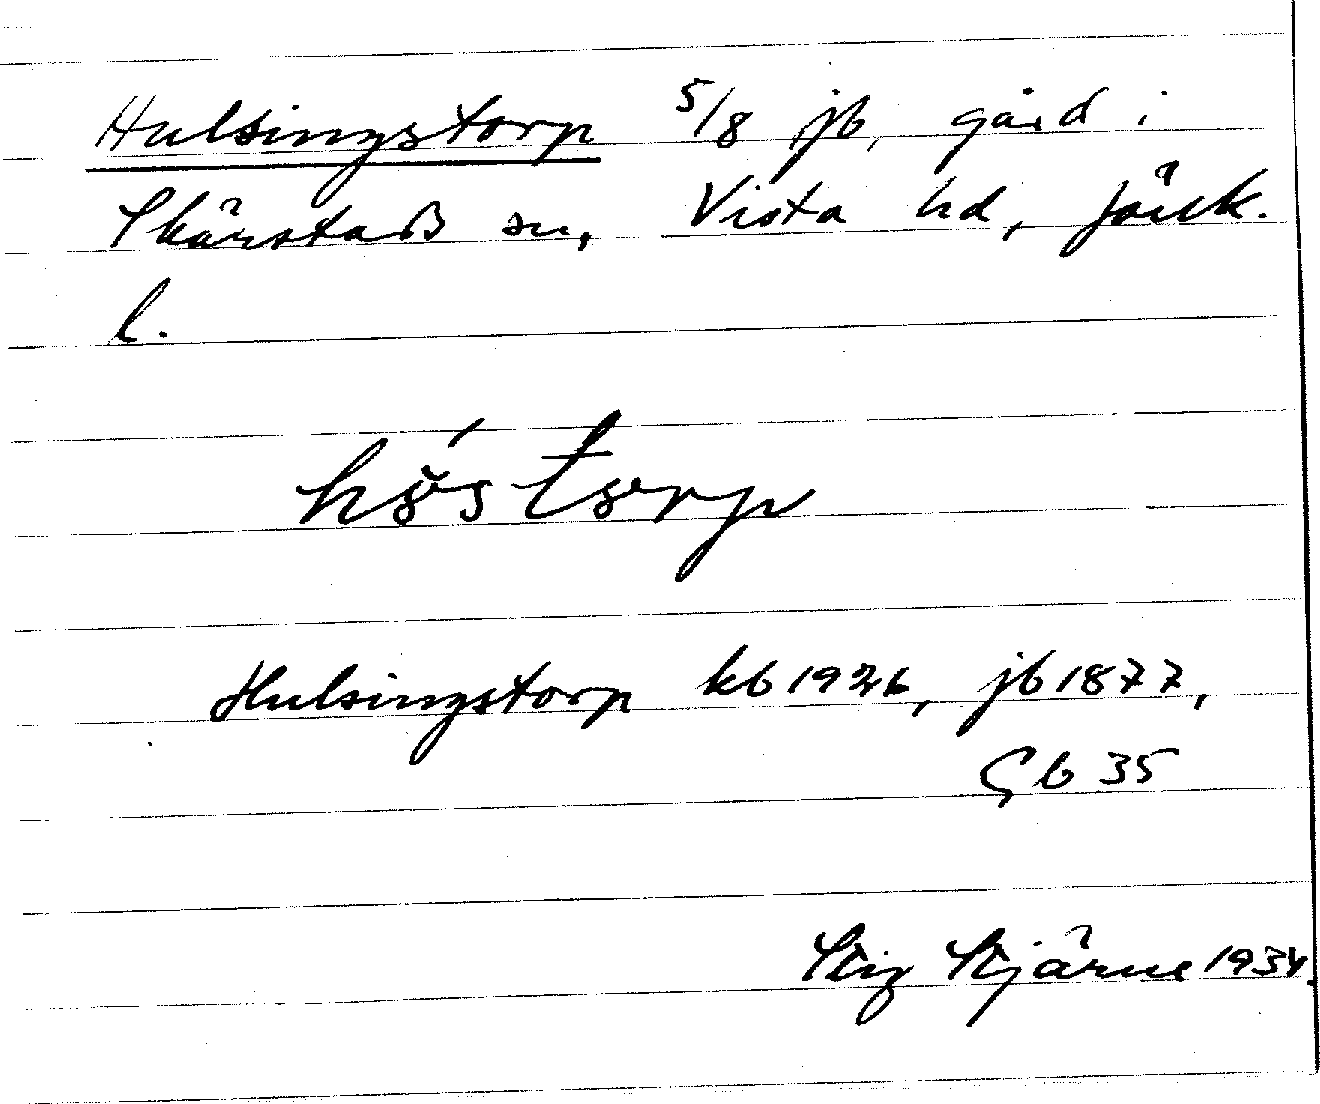 Hulsingstorp 5/8 jb, gård i
Skärstads sn, Vista hd, Jönk.
l.
hös torp
Hulsingstorp kb 1926, jb 1877,
Gb 35
Stig Stjärne 1934.